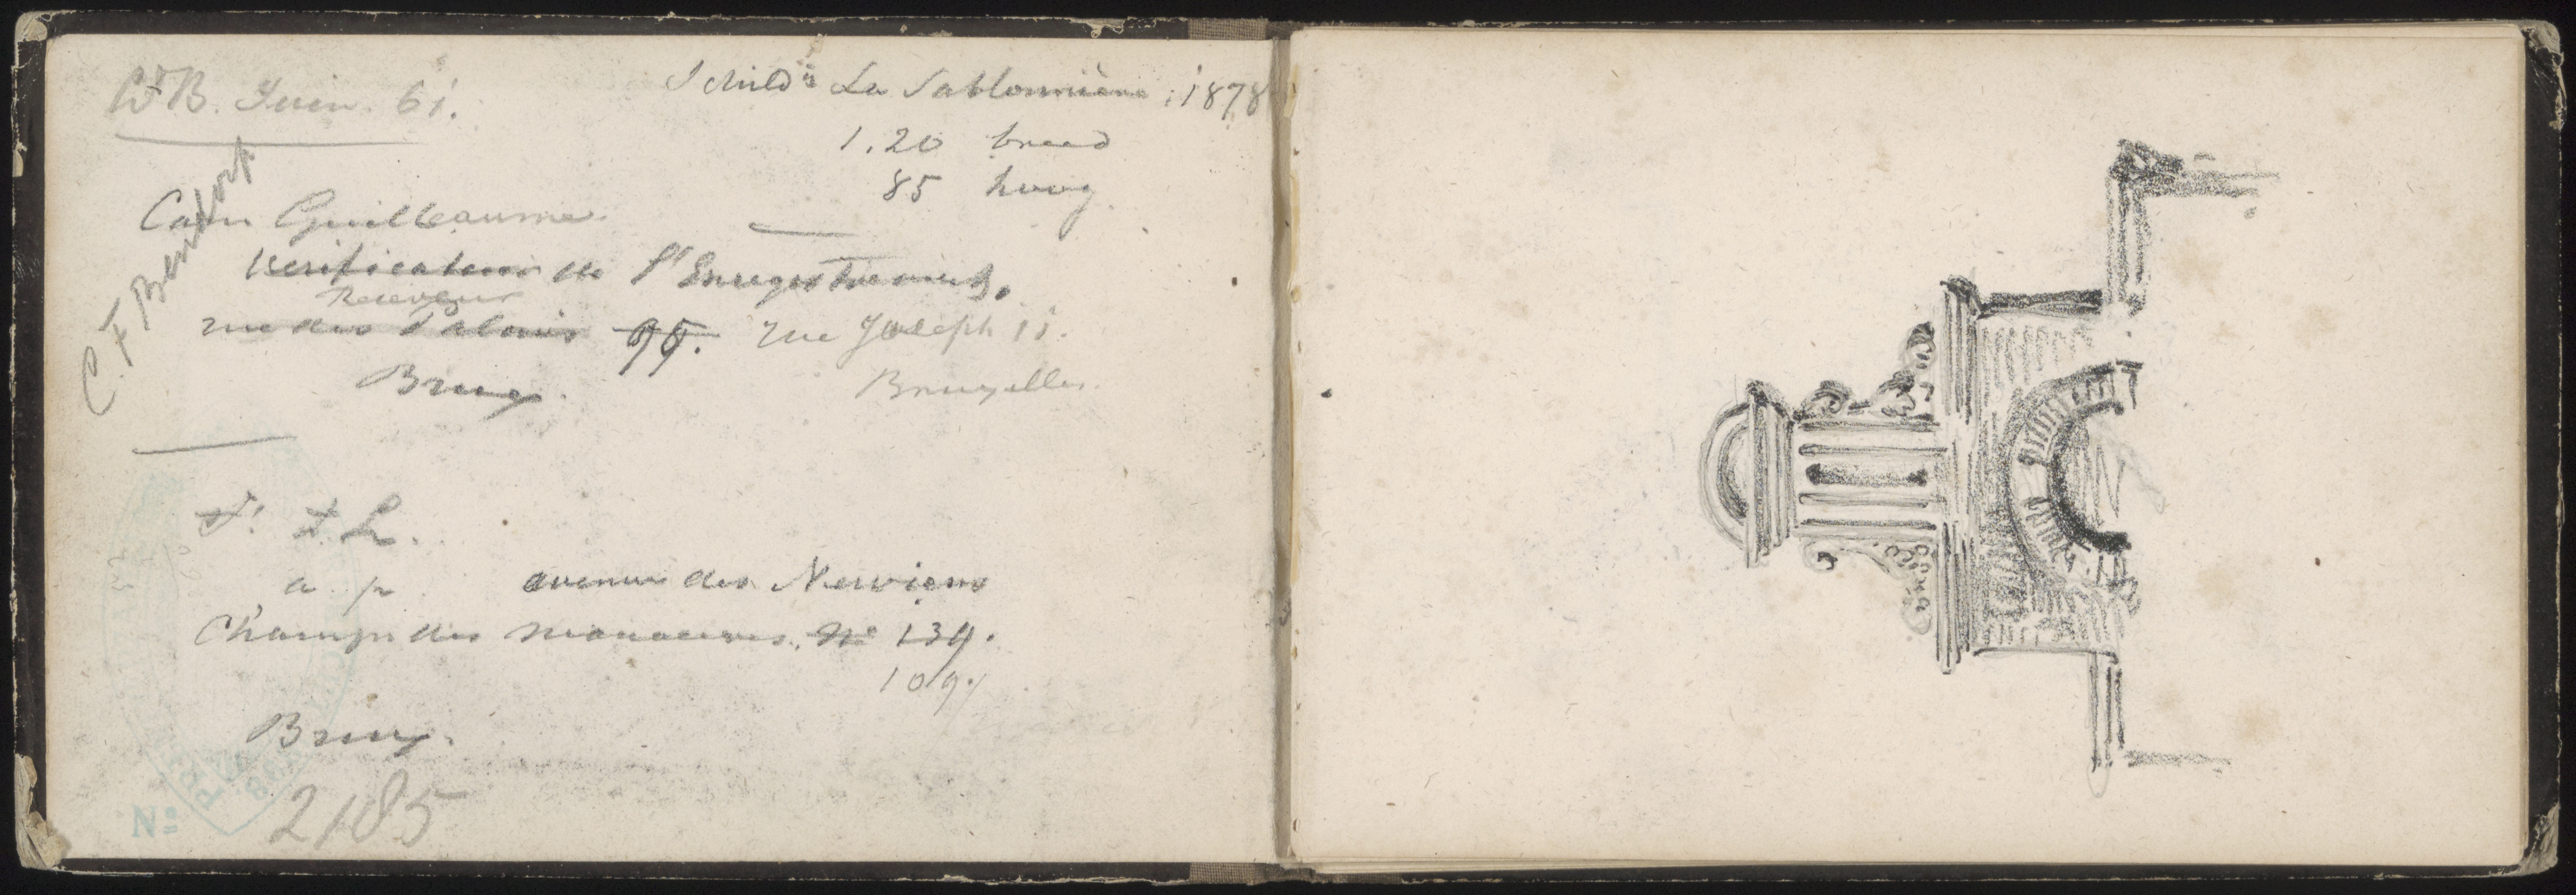 WB. Juin. 61.
Schild ij La Sablonnière 1878
1.20 breed
85 hoog
Guillaume
Verificateur de l'Enregistrement.
Receveur
rue des Palais 95. rue Joseph II.
Brux. Bruxelles.
C. F.
L.
a p avenue des Nerviens
Champ des manoeuvres. No 139.
109.
Brux.
No 2185